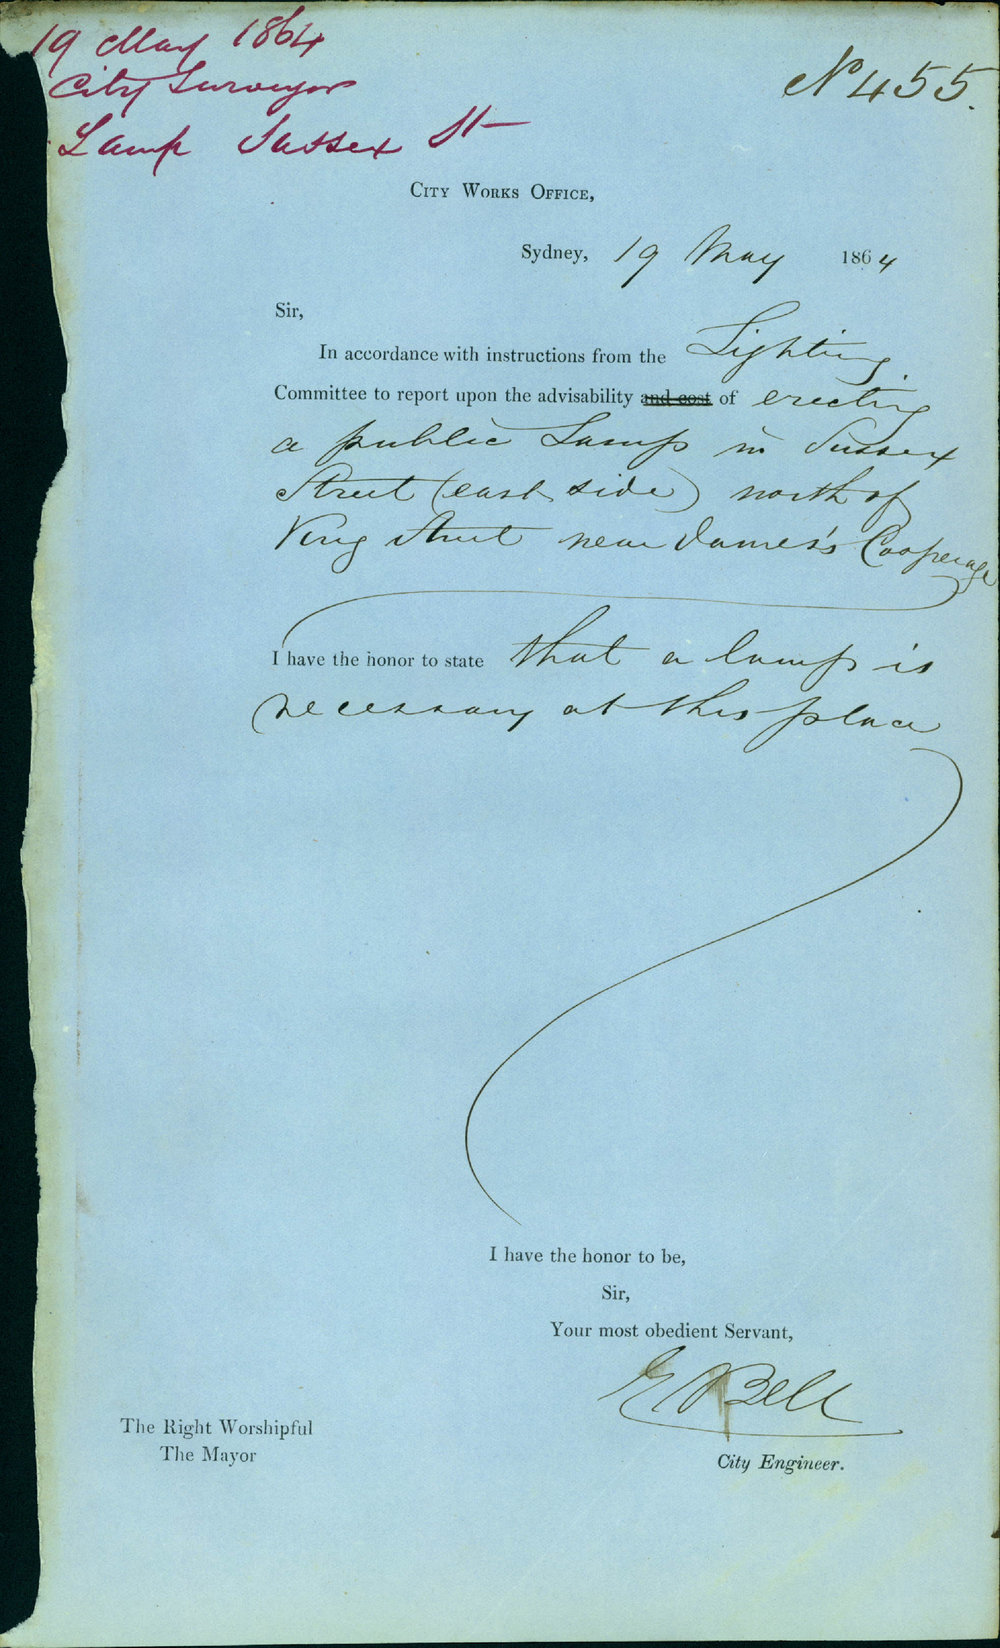 19 May 1864
City Surveyor
Lamp Sussex St
No 455.
City Works Office,
Sydney, 19 May 1864
Sir,
In accordance with instructions from the Lighting
Committee to report upon the advisability and cost of erecting
a public Lamp in Sussex
Street (east side) north of
King Street near James's Cooperage
I have the honor to state that a lamp is
necessary at this place
I have the honor to be,
Sir,
Your most obedient Servant,
E Bell
City Engineer.
The Right Worshipful
The Mayor